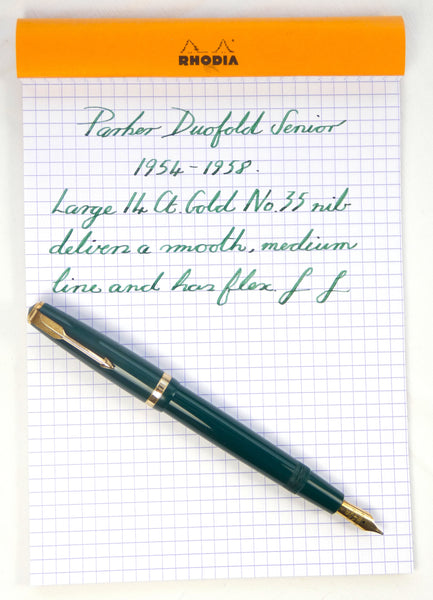 RHODIA
Parker Duofold Senior
1954-1958.
Large 14 Ct. Gold No. 35 nib
delivers a smooth, medium
line and has flex. f f